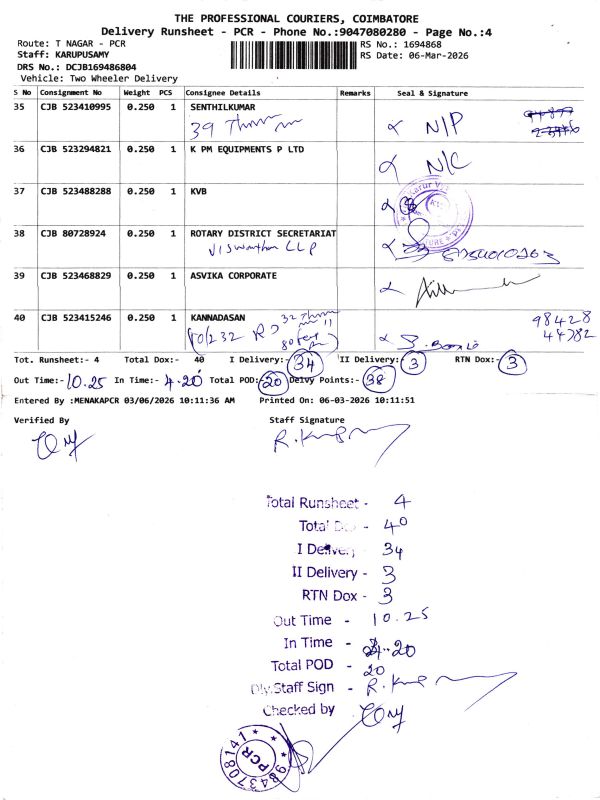 THE PROFESSIONAL COURIERS, COIMBATORE
Delivery Runsheet - PCR - Phone No.:9047080280 - Page No.:4
Route: T NAGAR - PCR
RS No.: 1694868
Staff: KARUPUSAMY
RS Date: 06-Mar-2026
DRS No.: DCJB169486804
Vehicle: Two Wheeler Delivery
S No Consignment No Weight PCS Consignee Details Remarks Seal & Signature
35 CJB 523410995 0.250 1 SENTHILKUMAR
39
N/P
36 CJB 523294821 0.250 1 K PM EQUIPMENTS P LTD
N/C
37 CJB 523488288 0.250 1 KVB
38 CJB 80728924 0.250 1 ROTARY DISTRICT SECRETARIAT
LLP
39 CJB 523468829 0.250 1 ASVIKA CORPORATE
40 CJB 523415246 0.250 1 KANNADASAN
32
98428
44782
Tot. Runsheet:- 4 Total Dox:- 40 I Delivery:- 34 II Delivery:- 3 RTN Dox:- 3
Out Time:- 10.25 In Time:- 4.20 Total POD:- 20 Delvy Points:- 38
Entered By :MENAKAPCR 03/06/2026 10:11:36 AM Printed On: 06-03-2026 10:11:51
Verified By Staff Signature
Total Runsheet - 4
Total Dox - 40
I Delivery - 34
II Delivery - 3
RTN Dox - 3
Out Time - 10.25
In Time - 4.20
Total POD - 20
Dly.Staff Sign -
Checked by
PCR
9843708141